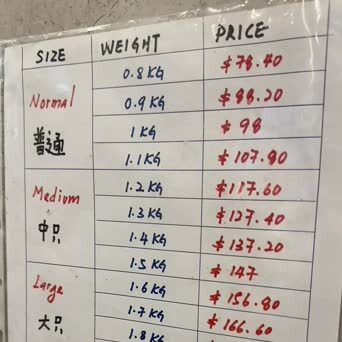 SIZE WEIGHT PRICE
0.8 KG $78.40
Normal 0.9 KG $88.20
普通 1 KG $98
1.1 KG $107.80
1.2 KG $117.60
Medium 1.3 KG $127.40
中只 1.4 KG $137.20
1.5 KG $147
Large 1.6 KG $156.80
大只 1.7 KG $166.60
1.8 KG